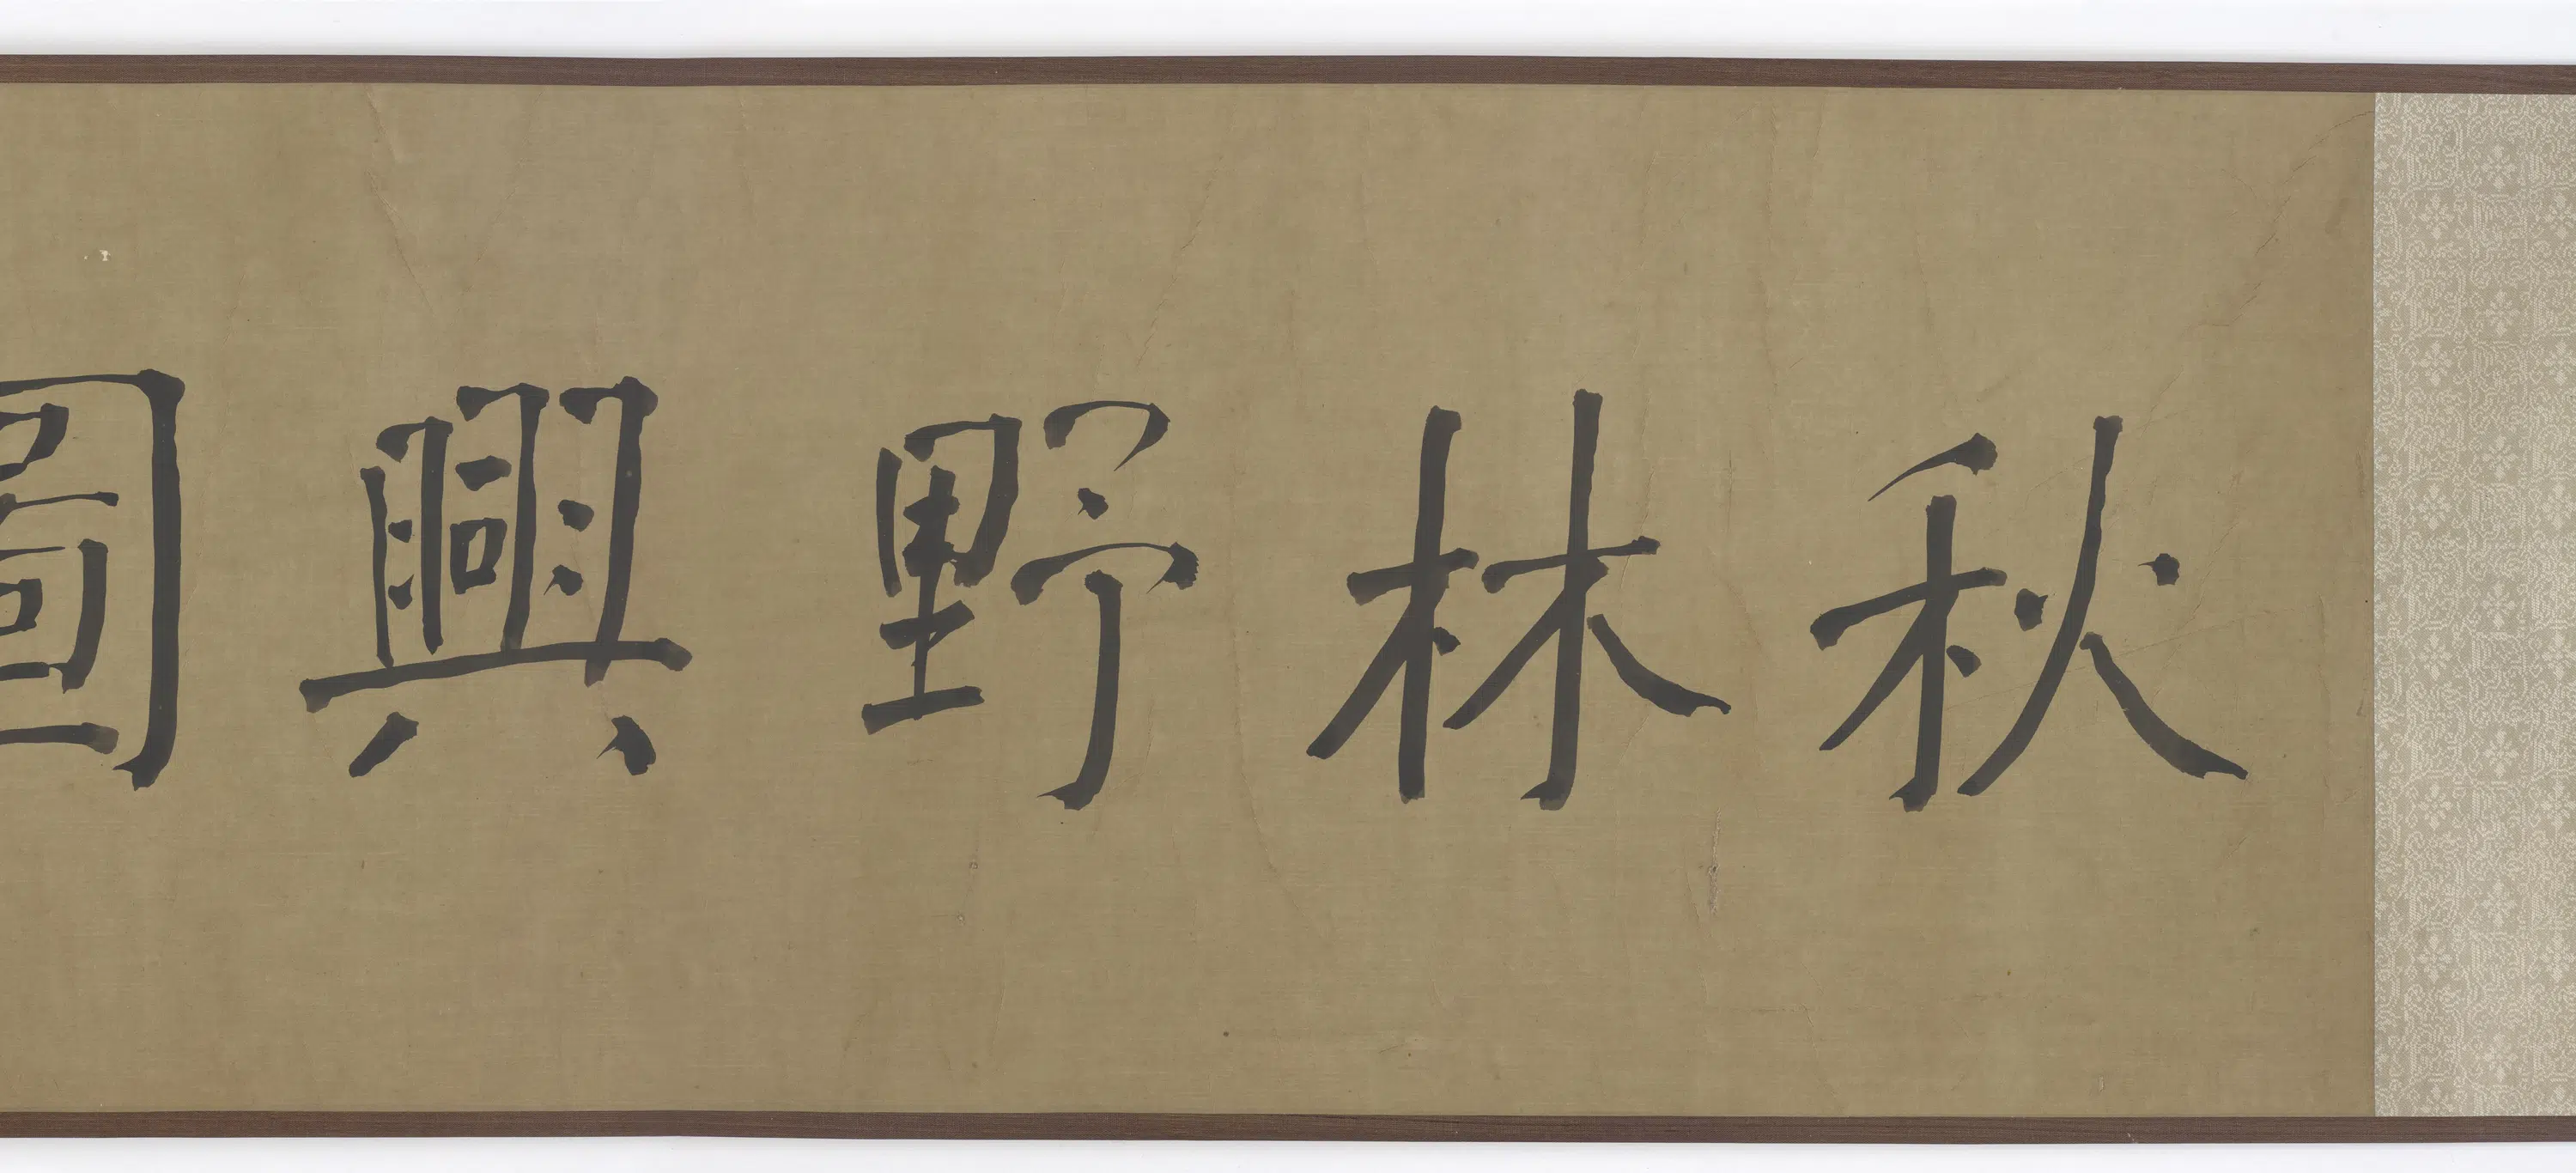 秋林野興圖